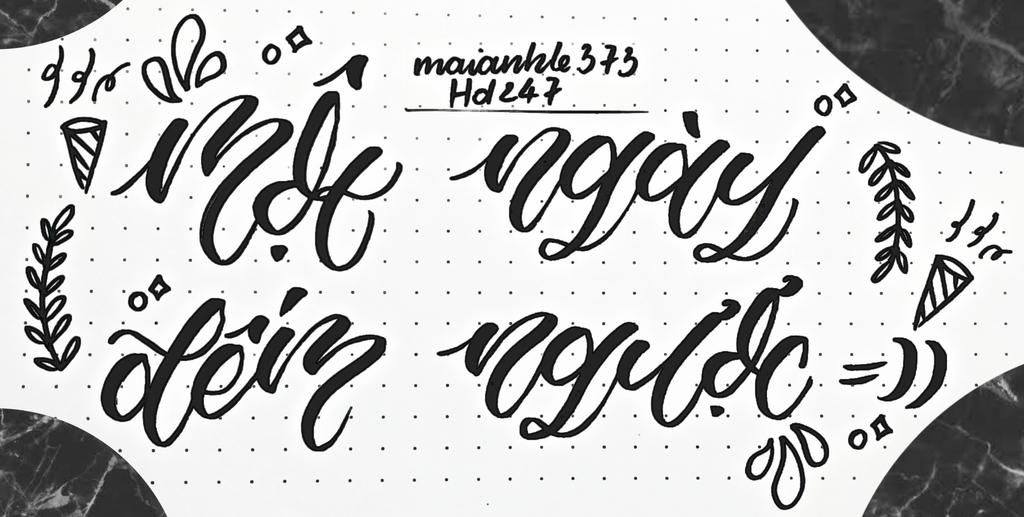 maianhle373
Hd247
một ngày
đếm ngược =))